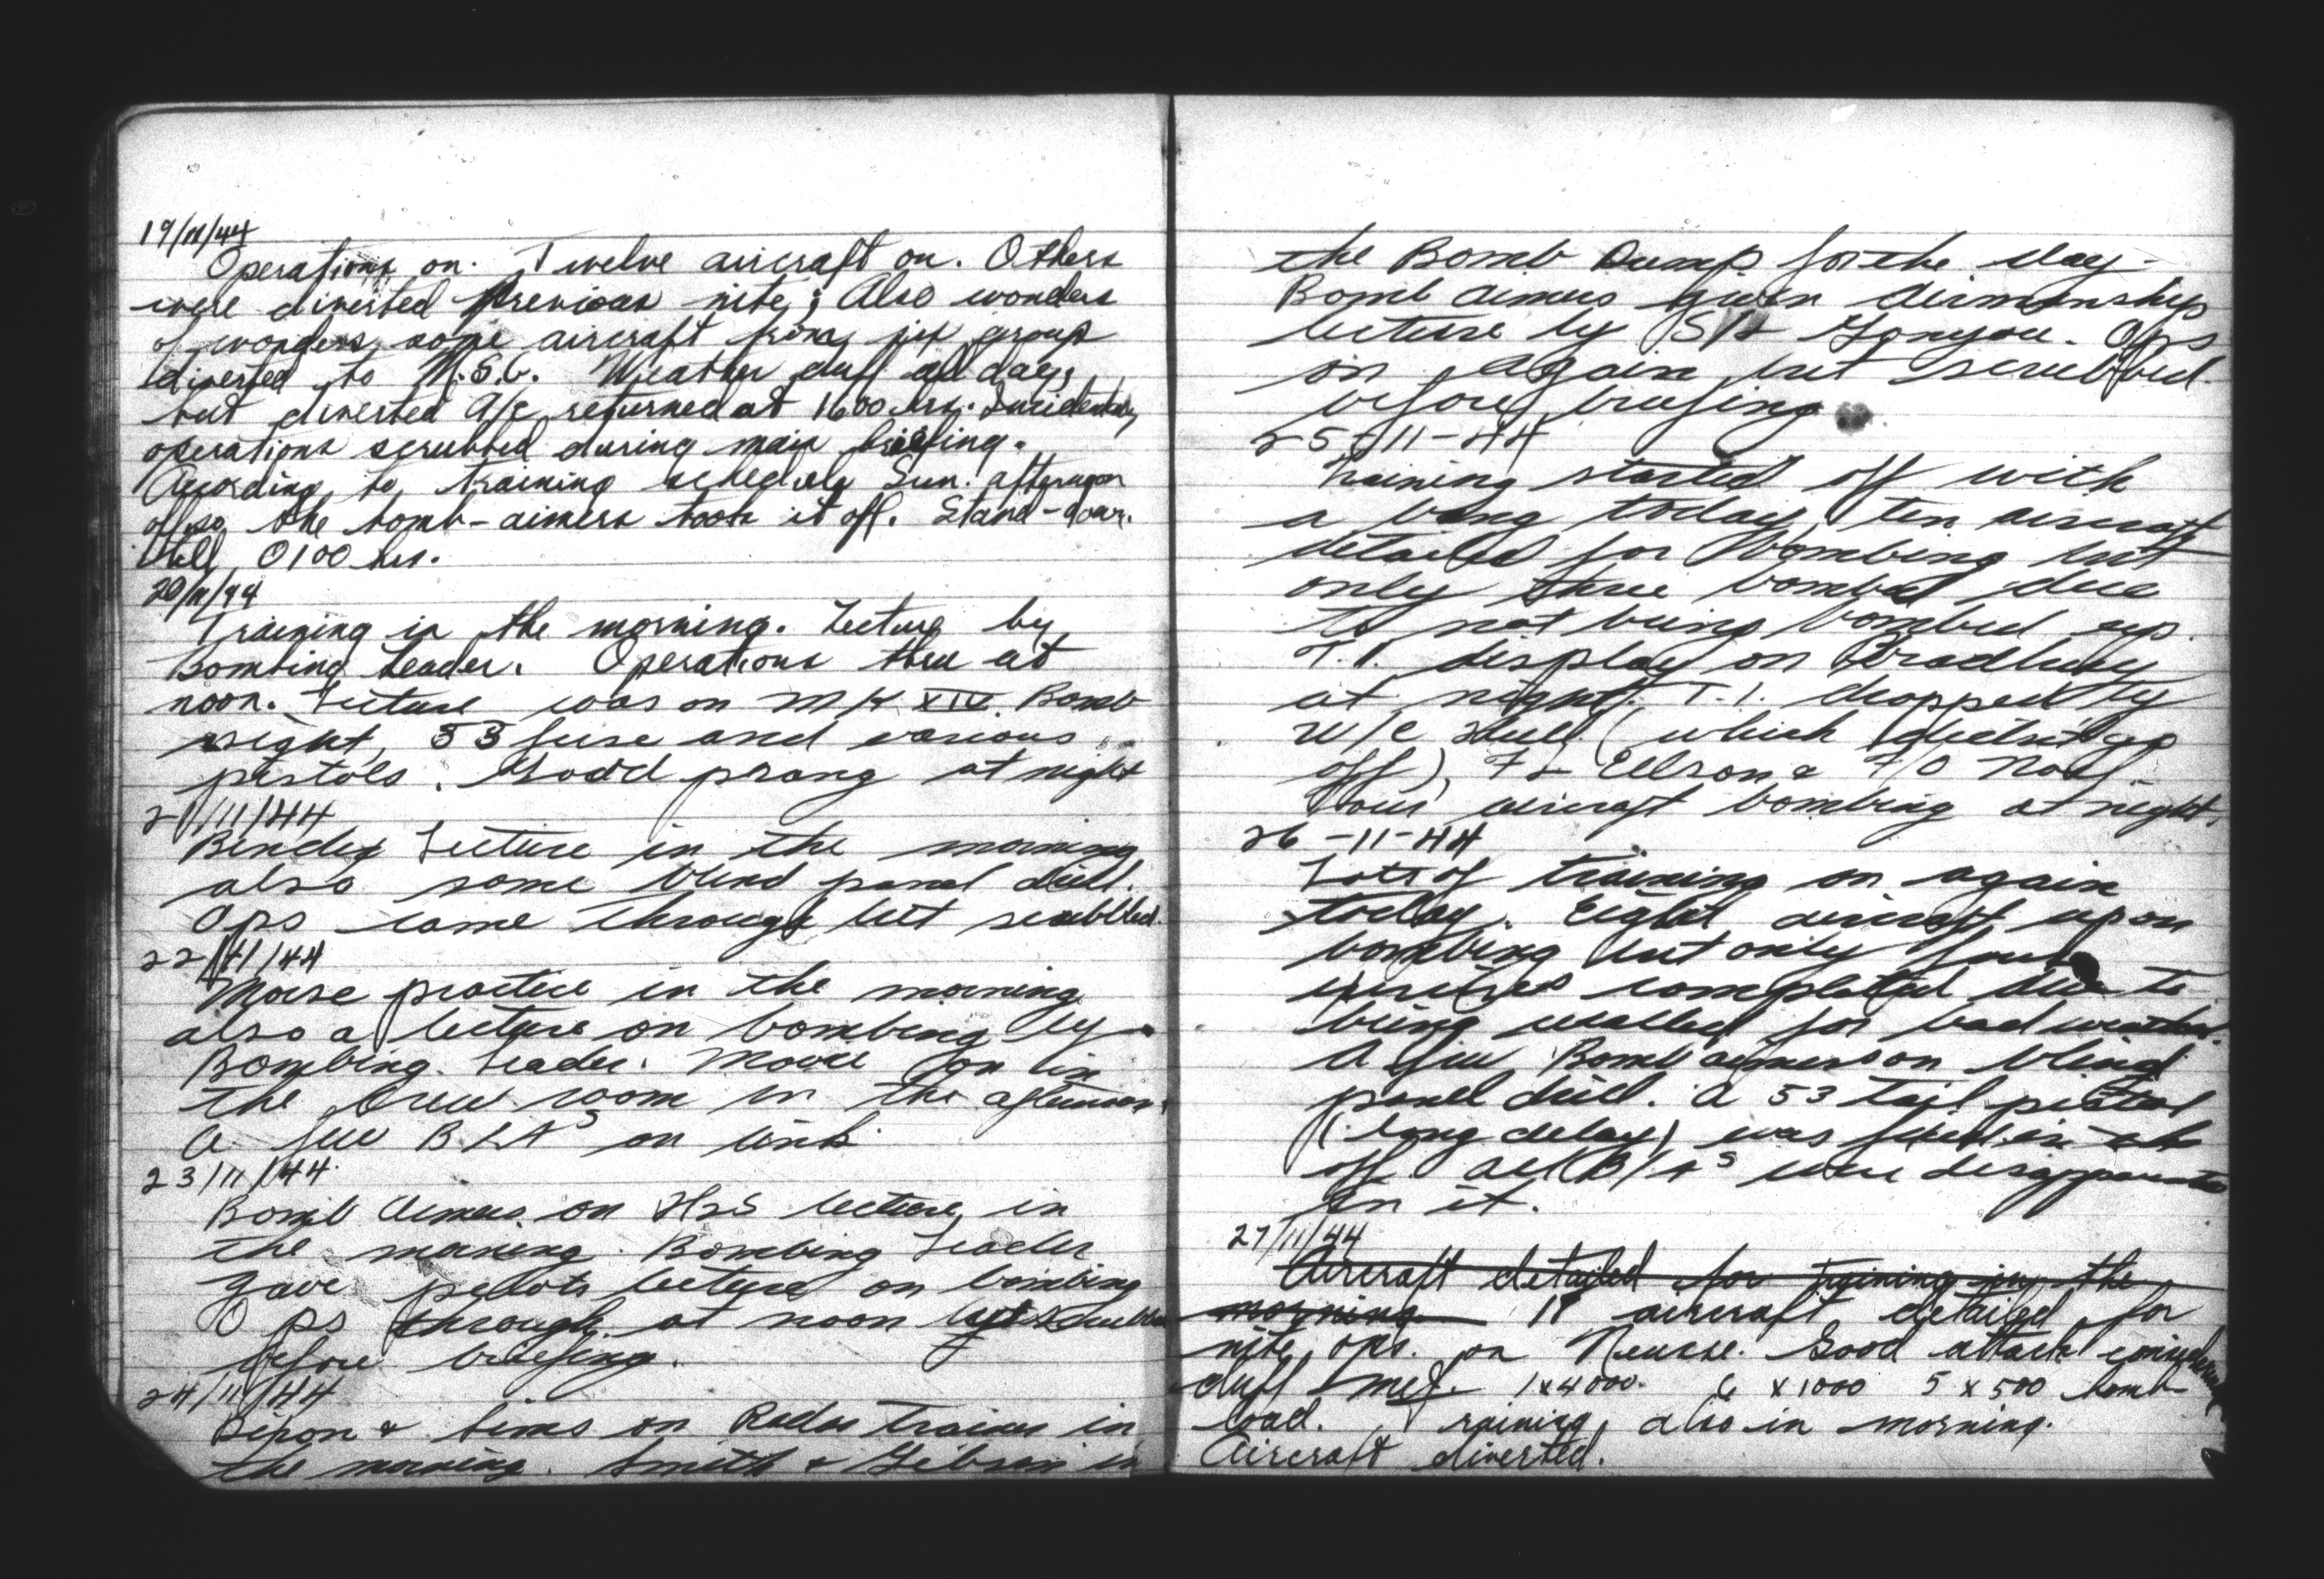 19/11/44
Operations on. Twelve aircraft on. Others
were diverted previous nite; Also wonders
of wonders, some aircraft from six group
diverted to M.S.G. Weather duff all day,
but diverted A/c returned at 1600 hrs. Incidentally
operations scrubbed during main briefing.
According to training schedule Sun. afternoon
off so the bomb-aimers took it off. Stand-down
till 0100 hrs.
20/11/44
Training in the morning. Lecture by
Bombing Leader. Operations thru at
noon. Lecture was on Mk XIV Bomb
sight, 53 fuse and various
pistols. Good prang at night
21/11/44
Lecture in the morning
also some blind panel drill.
Ops came through but scrubbed.
22/11/44
Morse practice in the morning
also a lecture on bombing by
Bombing Leader. Movie on in
the crew room in the afternoon.
A few B/As on link
23/11/44
Bomb Aimers on H2S lecture in
the morning. Bombing Leader
gave pilots lecture on bombing
Ops through at noon but scrubbed
before briefing.
24/11/44
& Sims on Radar trainer in
the morning. Smith & Gibson in
the Bomb Dump for the day.
Bomb aimers given Airmanship
lecture by S/L Gonyou. Ops
on again but scrubbed
before briefing
25-11-44
Training started off with
a bang today, ten aircraft
detailed for bombing but
only three bombed due
to not being bombed up.
T.I. display on Bradbury
at night. T.I. dropped by
W/C Hull (which didn't go
off), F/L Elsron & F/O
Four aircraft bombing at night.
26-11-44
Lots of training on again
today. Eight aircraft up on
bombing but only four
exercises completed due to
being recalled for bad weather.
A few Bomb aimers on blind
panel drill. A 53 tail pistol
(long delay) was
off. All B/As were disappointed
in it.
27/11/44
Aircraft detailed for Training in the
morning 11 aircraft detailed for
nite ops. on Neuss. Good attack considering
duff met. 1x4000. 6 x 1000 5 x 500 bomb-
load. Training also in morning.
Aircraft diverted.